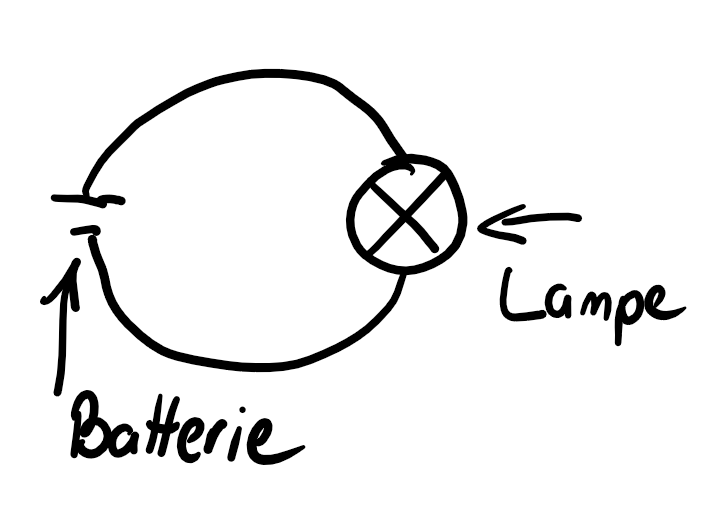 Lampe
Batterie